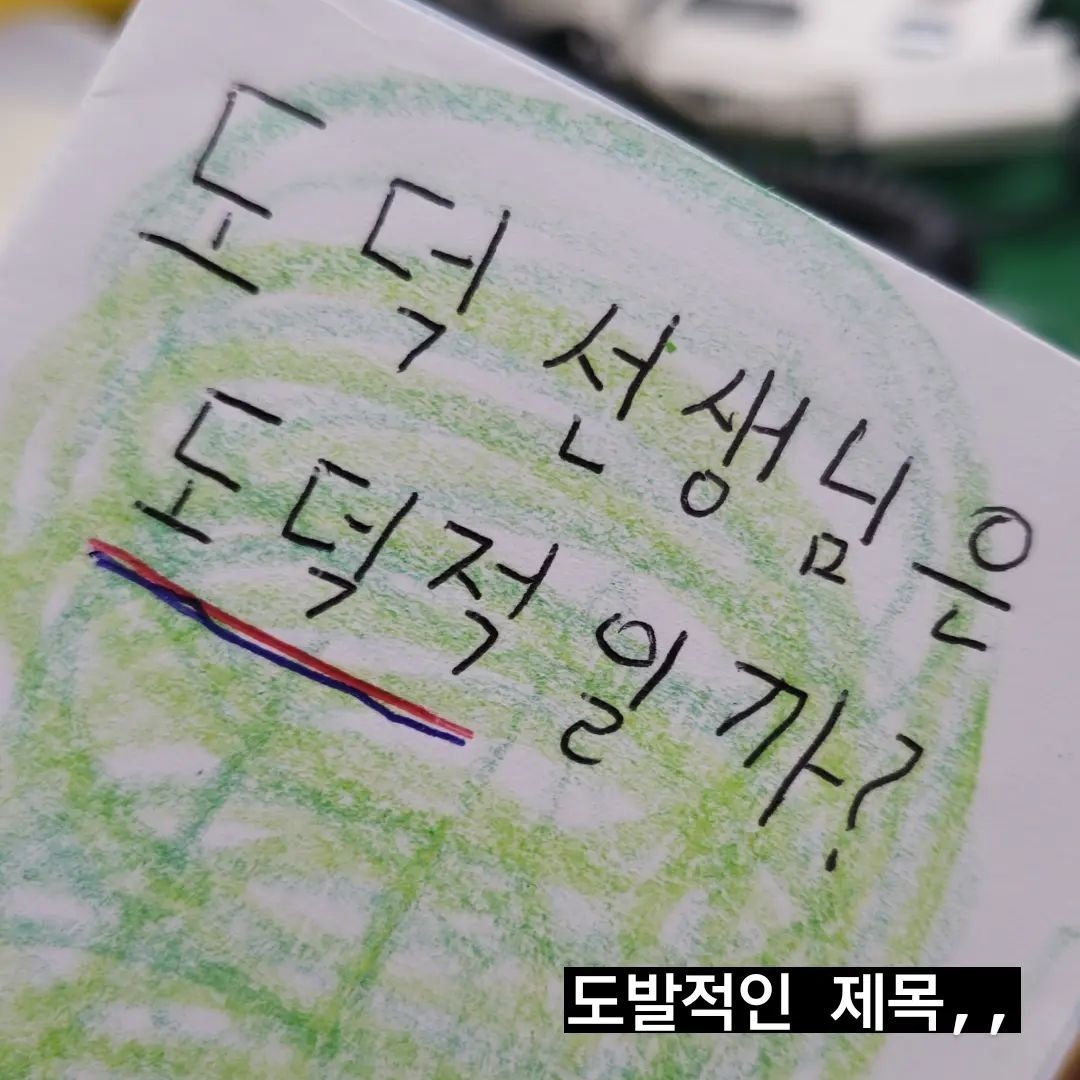 도덕 선생님은
도덕적일까?
도발적인 제목,,